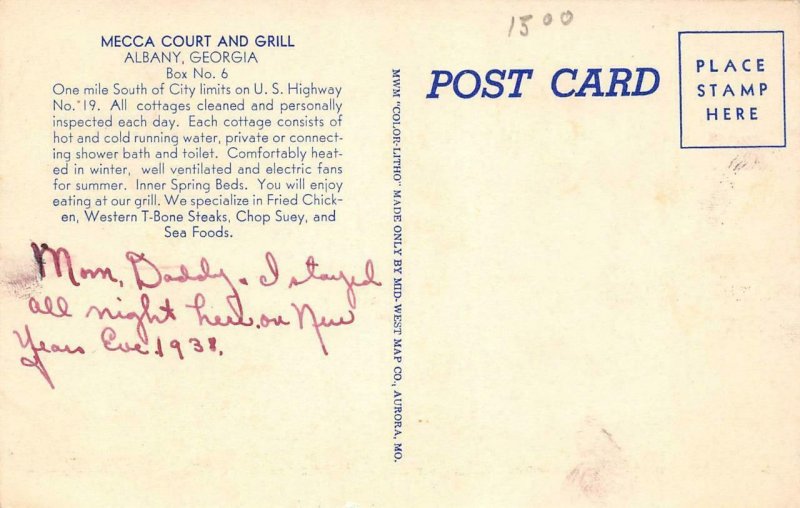 1500
MECCA COURT AND GRILL
ALBANY, GEORGIA
Box No. 6
One mile South of City limits on U. S. Highway
No. 19. All cottages cleaned and personally
inspected each day. Each cottage consists of
hot and cold running water, private or connect-
ing shower bath and toilet. Comfortably heat-
ed in winter, well ventilated and electric fans
for summer. Inner Spring Beds. You will enjoy
eating at our grill. We specialize in Fried Chick-
en, Western T-Bone Steaks, Chop Suey, and
Sea Foods.
Mom, Daddy. I stayed
all night here on New
Years Eve. 1938.
MWM "COLOR-LITHO" MADE ONLY BY MID-WEST MAP CO., AURORA, MO.
POST CARD
PLACE
STAMP
HERE